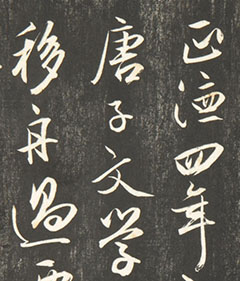 正德四年
唐子文学
移舟過